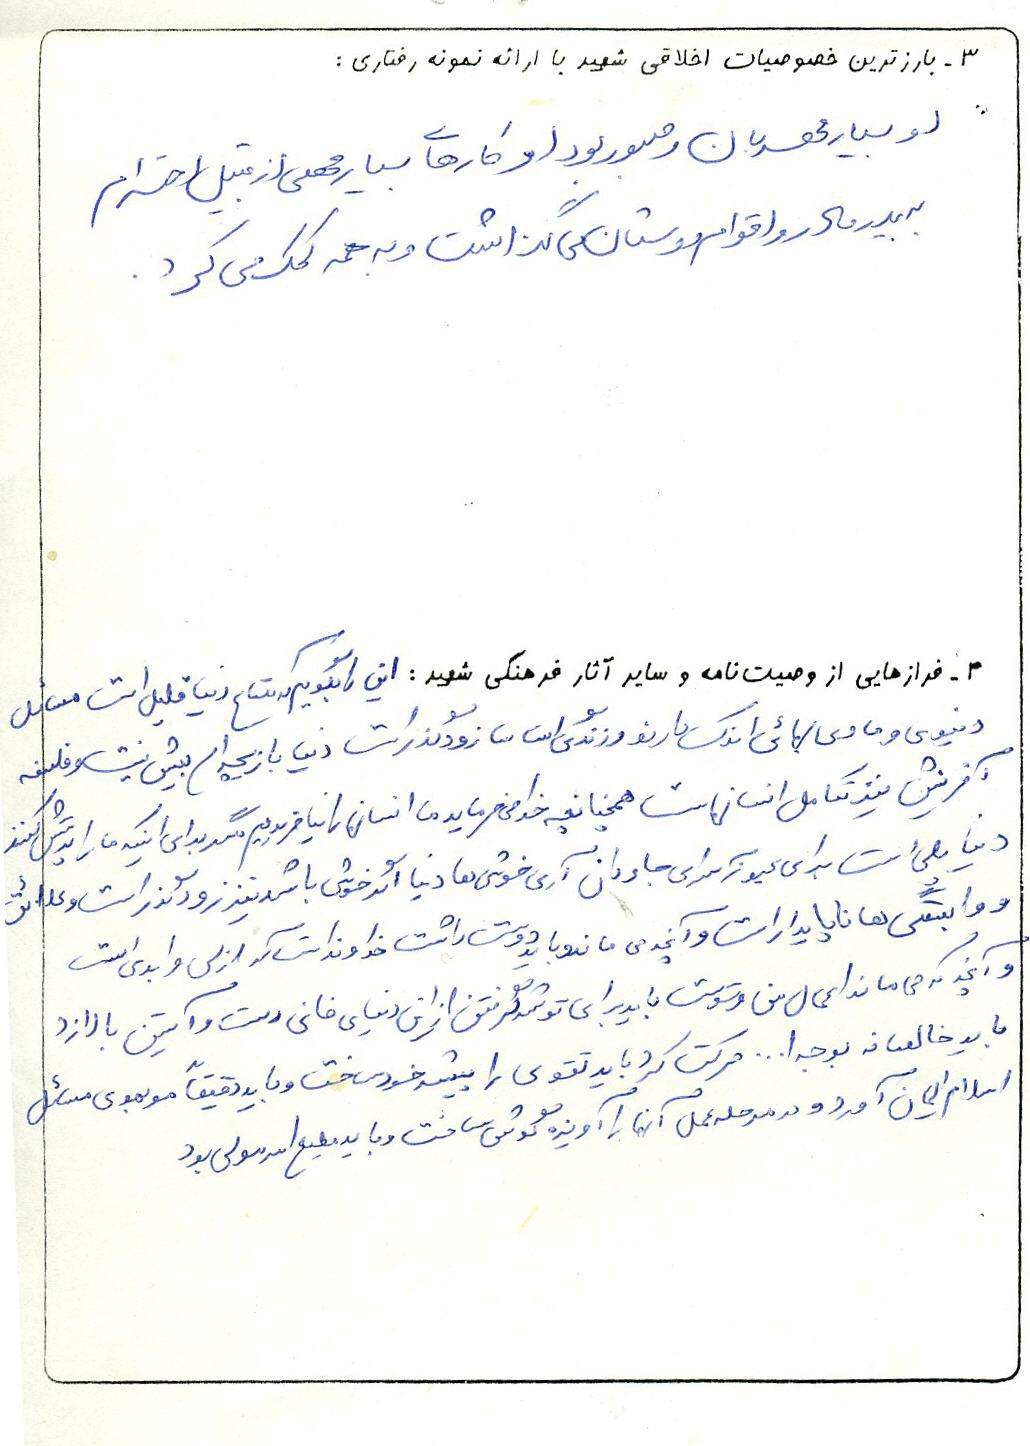 ۳ـ بارزترین خصوصیات اخلاقی شهید با ارائه نمونه رفتاری :
او بسیار مهربان و صبور بود او کارهای بسیار مهمی از قبیل احترام
به پدر مادر و اقوام دوستان می گذاشت و به همه کمک می کرد .
۴ـ فرازهایی از وصیت‌نامه و سایر آثار فرهنگی شهید : این را بگویم که متاع دنیا قلیل است مسائل
دنیوی و مادی بهائی اندک دارند و زندگی انسانها زودگذر است دنیا بازیچه ای بیش نیست و فلسفه
آفرینش نیز تکامل انسانهاست همچنانچه خدا می فرماید ما انسانها را نیافریدیم مگر برای اینکه ما را پرستش کنند
دنیا پلی است برای عبور به سرای جاودان آری خوشی ها دنیا اگر خوش باشد نیز زودگذر است و علائق
و وابستگی ها ناپایدار است و آنچه می ماند و باید دوست داشت خداوند است که ازلی و ابدی است
و آنچه که می ماند اعمال من و توست باید برای توشه گرفتن از این دنیای فانی دست و آستین بالا زد
باید خالصانه بوجه ا... حرکت کرد باید تقوی را پیشه خود ساخت و باید دقیقاً موبموی مسائل
اسلام ایمان آورد و در مرحله عمل آنها را آویزه گوش ساخت و باید مطیع امر مولی بود